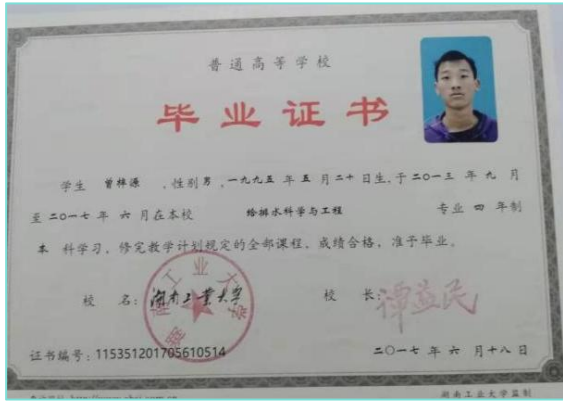 普通高等学校
毕业证书
学生 曾梓源 ,性别 男 ,一九九五 年 五 月 二十 日生,于 二〇一三 年 九 月
至 二〇一七 年 六 月在本校 给排水科学与工程 专业 四 年制
本 科学习,修完教学计划规定的全部课程,成绩合格,准予毕业。
校 名: 湖南工业大学 校 长: 谭益民
证书编号: 115351201705610514 二〇一七 年 六 月十八 日
湖南工业大学监制